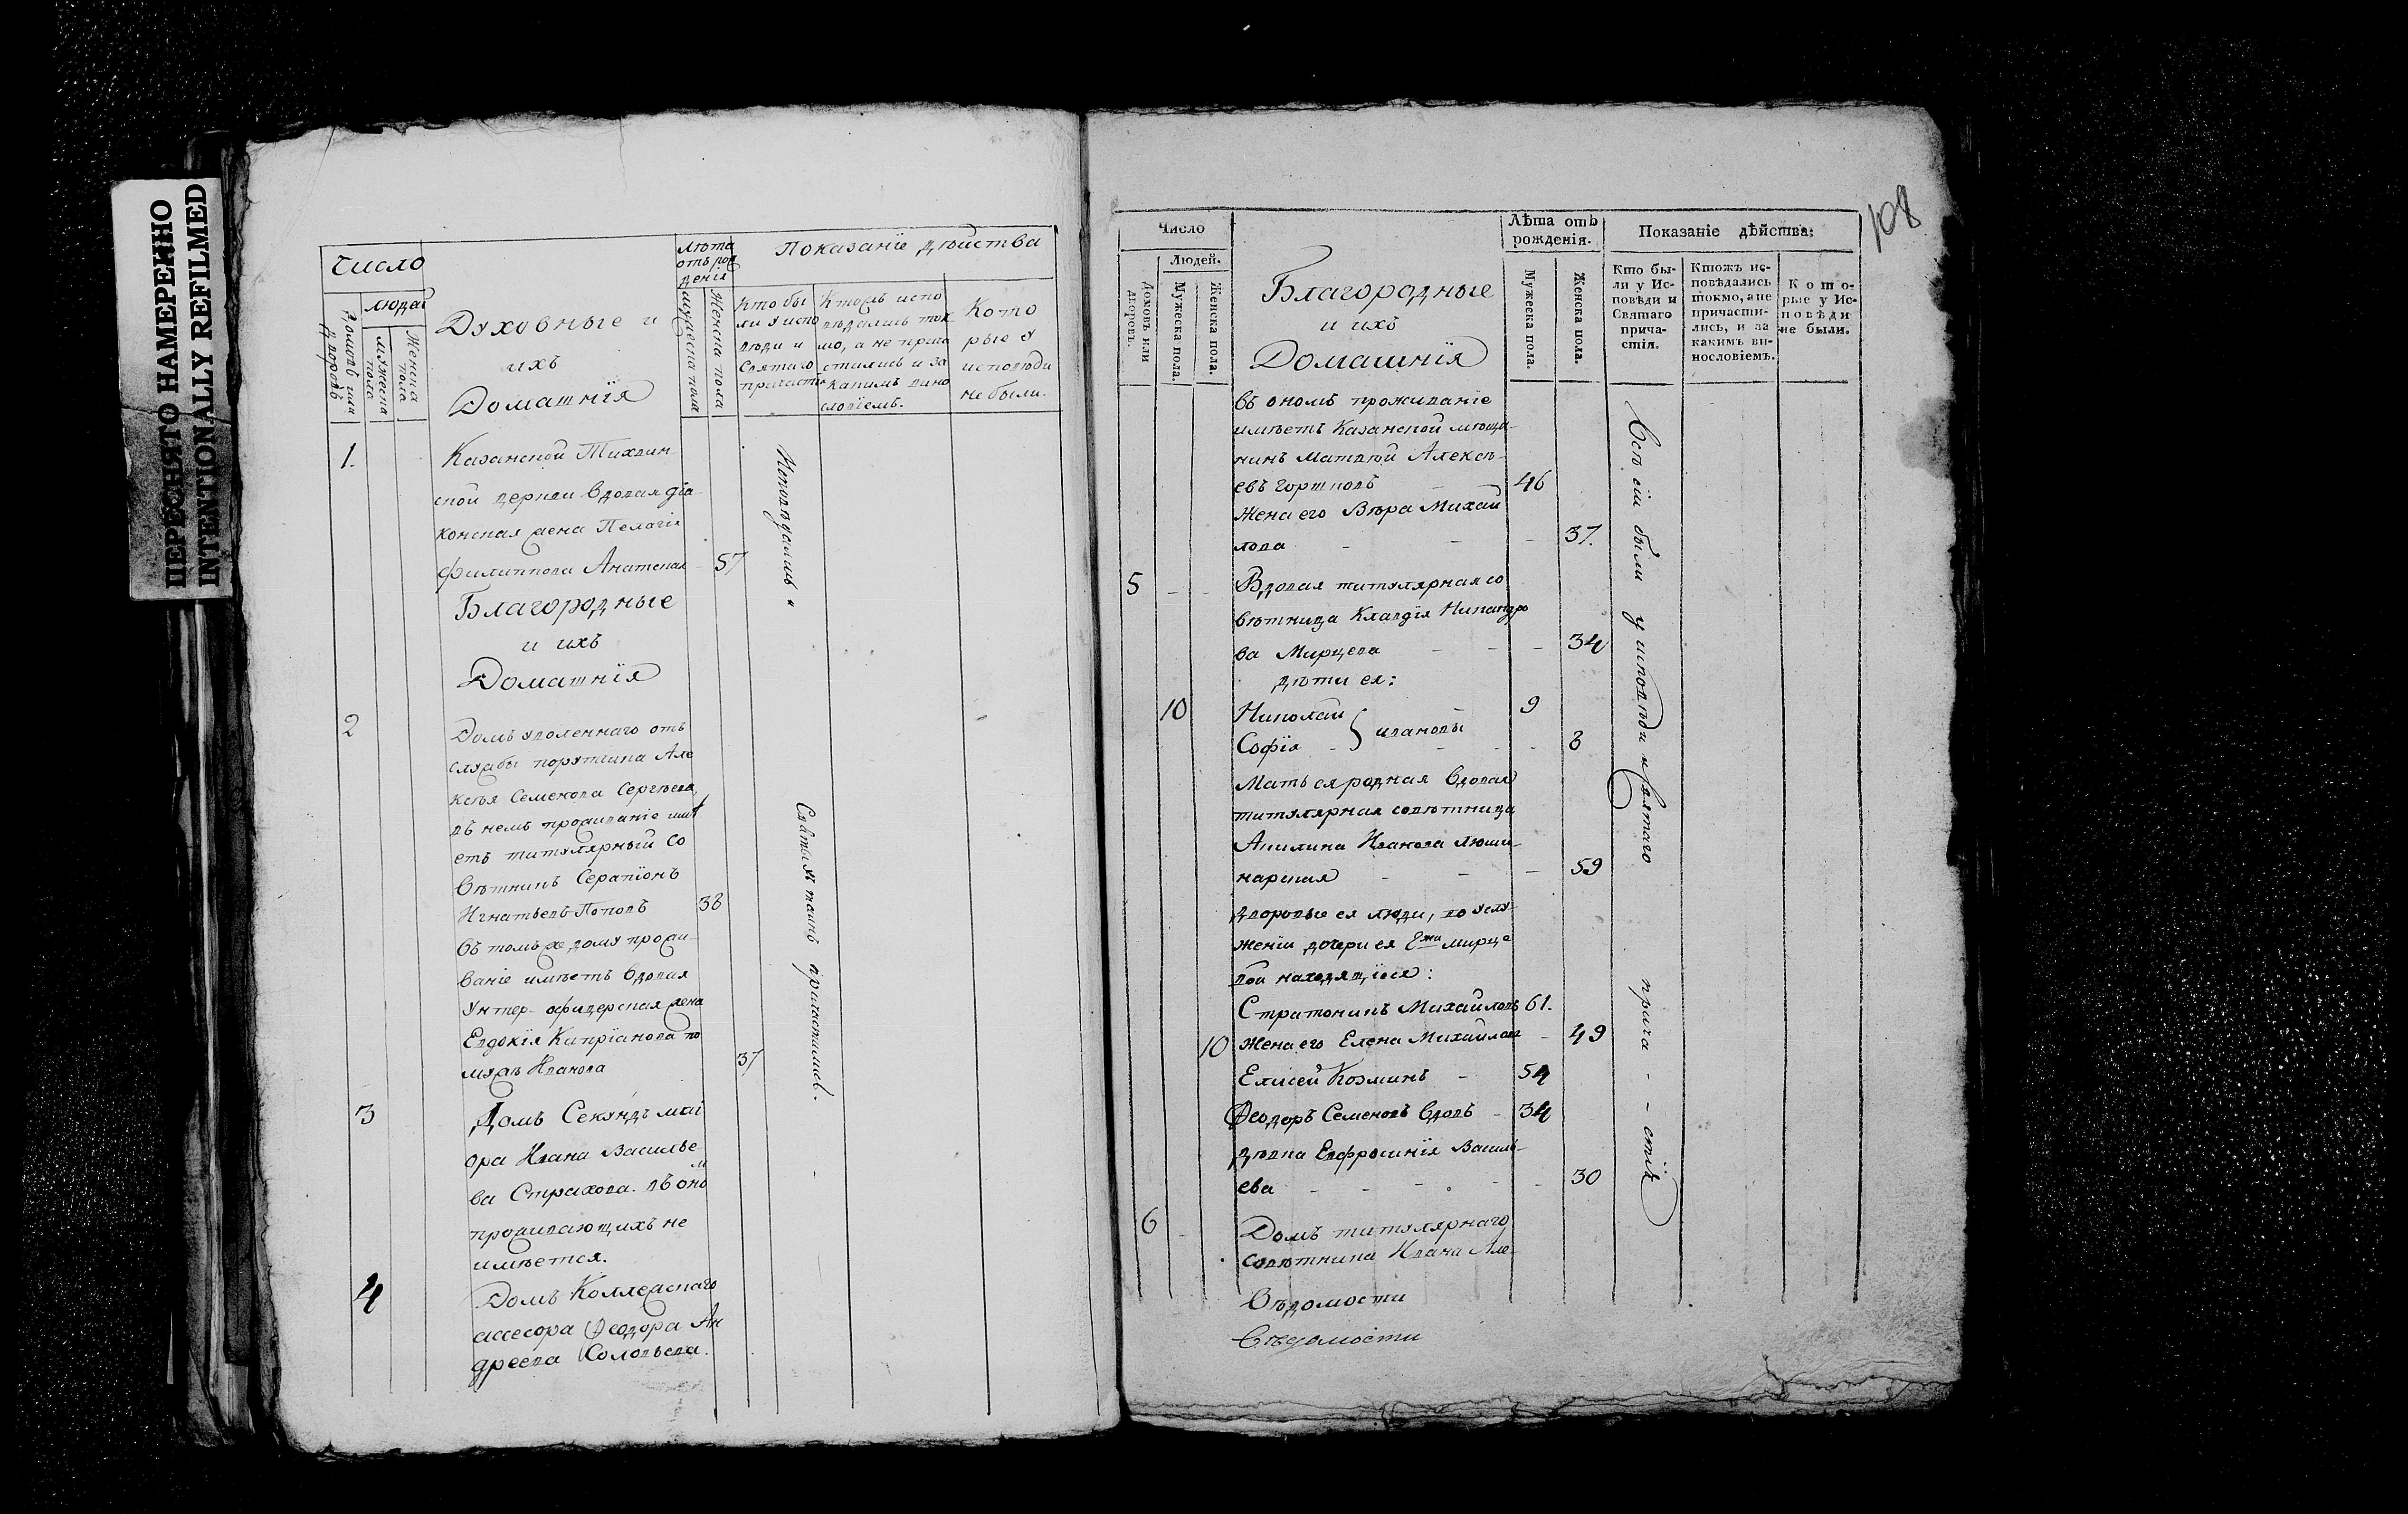 ПЕРЕСНЯТО НАМЕРЕННО
INTENTIONALLY REFILMED
Число
людей
Домовъ или
дворовъ
Мужеска
пола
Женска
пола
Духовные и
ихъ
Домашнїя
Лѣта
отъ рож
денія
Мужеска пола
Женска пола
Показанїе дѣйства
Кто бы
ли у испо
вѣди и
Святаго
причастія
Ктожъ испо
вѣдались ток
мо, а не прича
стились и за
какимъ вино
словїемъ.
Кото
рые у
исповѣди
не были.
1.
Казанской Тихвин
ской церкви вдовая діа
конская жена Пелагія
Филиппова 57
Благородные
и ихъ
Домашнїя
2
Домъ уволеннаго отъ
службы поручика Але
ксѣя Семенова Сергѣева,
въ немъ проживаніе имѣ
етъ титулярный со
вѣтникъ Серапїонъ
Игнатьевъ Поповъ 38
Въ томъ же дому прожи-
ваніе имѣетъ вдовая
Унтер-офицерская жена
Евдокія Кипрїанова по
мужѣ Иванова 37
3
Домъ Секундъ маі
ора Ивана Василье
ва Страхова. въ оно
м
проживающихъ не
имѣется.
4
Домъ Коллежскаго
ассесора Ѳеодора Ан
дреева Соловьева.
Исповѣдались и
Святыхъ таинъ причастились.
108
Число
Людей.
Домовъ или
дворовъ.
Мужеска пола.
Женска пола.
Благородные
и ихъ
Домашнїя
Лѣта отъ
рожденія.
Мужеска пола.
Женска пола.
Показаніе дѣйства:
Кто бы-
ли у Ис-
повѣди и
Святаго
прича-
стія.
Ктожъ ис-
повѣдались
токмо, а не
причасти-
лись, и за
какимъ ви-
нословіемъ.
Кото-
рые у Ис-
повѣди
не были.
въ ономъ проживаніе
имѣетъ Казанской мѣща-
нинъ Матвѣй Алексѣ-
евъ Горшковъ - 46
Жена его Вѣра Михай
лова - - - 37.
5 - - Вдовая титулярная со
вѣтница Клавдїя Никандро
ва Мирцева - - - 34
дѣти ея:
10 Николай - 9
Софїя - } Ивановы - - - 8
Мать ея родная вдовая
титулярная совѣтница
Акилина Иванова
нарская - - - 59
Дворовые ея люди, во услу-
женіи дочери ея Гжи Мирце
вой находящїеся:
Стратоникъ Михайловъ 61.
10 Жена его Елена Михайлова - 49
Елисей Козминъ - 54
Ѳеодоръ Семеновъ вдовъ - 34
Дѣвка Евфросинїя Василь-
ева - - - - - - 30
6 - Домъ титулярнаго
совѣтника Ивана Але-
Вѣдомости
Вѣдомости
Всѣ сіи были у исповѣди и Святаго прича - - стія